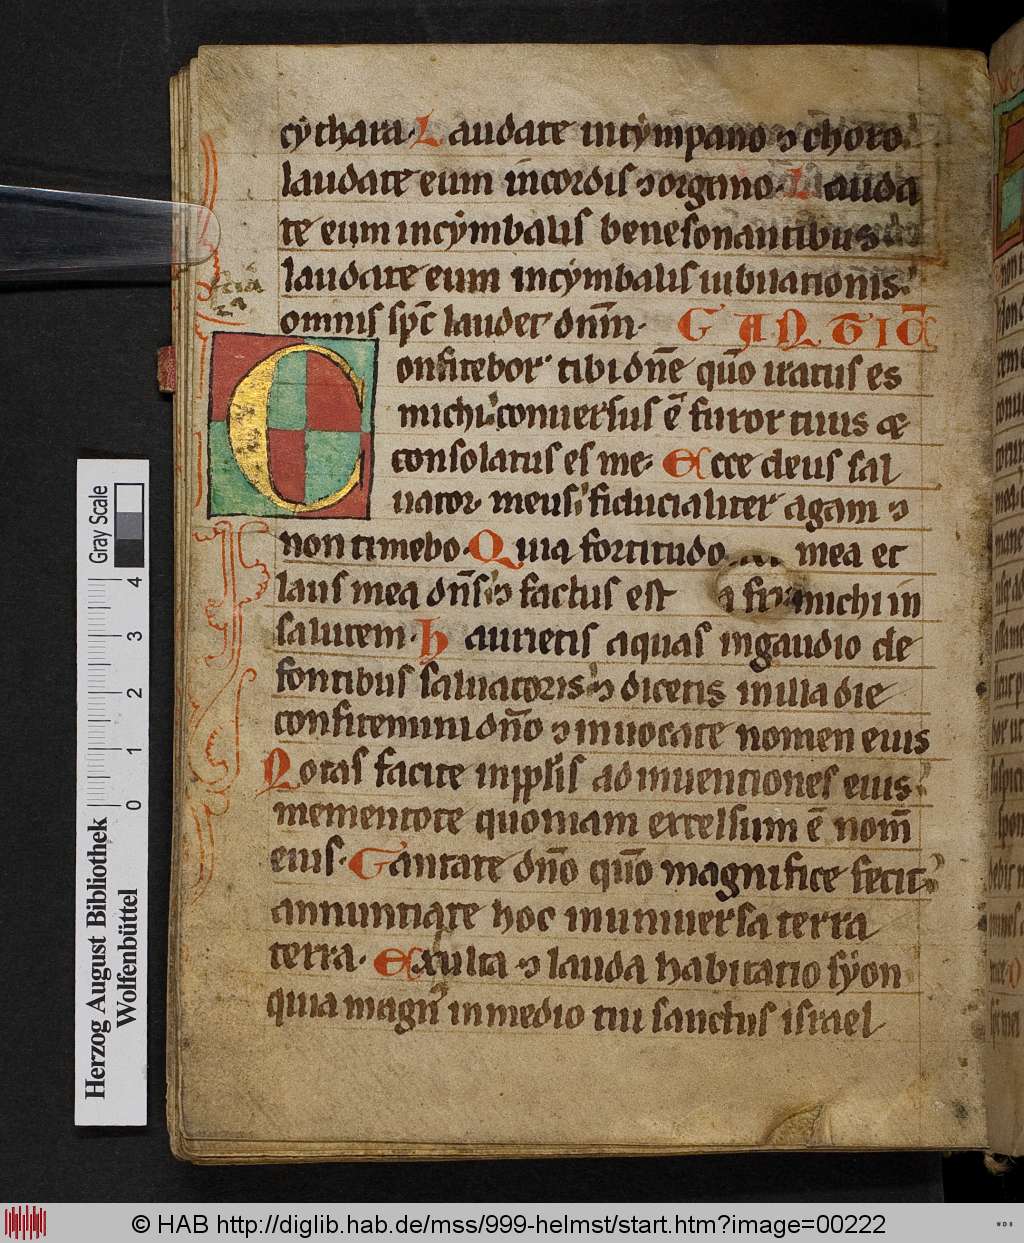 cythara. Laudate in tympano ⁊ choro.
laudate eum in cordis ⁊ organo. Lauda
te eum in cymbalis benesonantibus.
laudate eum in cymbalis iubilationis.
omnis sp̄c laudet dnm̄. CANTIC̄
Confitebor tibi dn̄e qūo iratus es
michi. conuersus ē furor tuus &
consolatus es me. Ecce deus sal
uator meus fiducialiter agam ⁊
non timebo. Quia fortitudo mea et
laus mea dn̄s ⁊ factus est michi in
salutem. Haurietis aquas in gaudio de
fontibus saluatoris ⁊ dicetis in illa die
confitemini dn̄o ⁊ inuocate nomen eius
Notas facite in pplīs ad inuentiones eius.
mementote quoniam excelsum ē nom̄
eius. Cantate dn̄o qūo magnifice fecit.
annuntiate hoc in uniuersa terra
terra. Exulta ⁊ lauda habitatio syon
quia magn᷒ in medio tui sanctus israel
Gray Scale
0 1 2 3 4
Herzog August Bibliothek
Wolfenbüttel
© HAB http://diglib.hab.de/mss/999-helmst/start.htm?image=00222